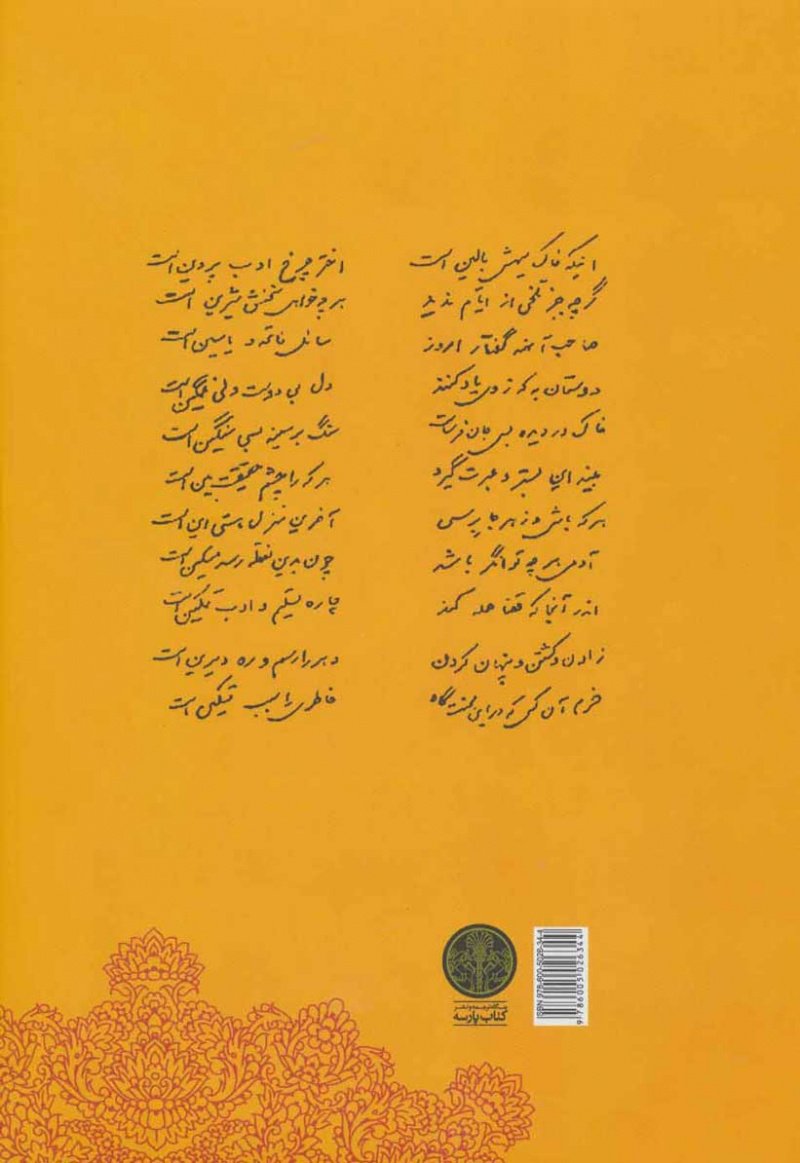 اینکه خاک سیهش بالین است اختر چرخ ادب پروین است
گرچه جز تلخی از ایام ندید هر چه خواهی سخنش شیرین است
صاحب آنهمه گفتار امروز سائل فاتحه و یاسین است
دوستان به که ز وی یاد کنند دل بی دوست دلی غمگین است
خاک در دیده بسی جان فرساست سنگ بر سینه بسی سنگین است
بیند این بستر و عبرت گیرد هر که را چشم حقیقت بین است
هر که باشی و ز هر جا برسی آخرین منزل هستی این است
آدمی هر چه توانگر باشد چون بدین نقطه رسد مسکین است
اندر آنجا که قضا حمله کند چاره تسلیم و ادب تمکین است
زادن و کشتن و پنهان کردن دهر را رسم و ره دیرین است
خرم آن کس که در این محنت‌گاه خاطری را سبب تسکین است
کتاب پارسه
ISBN 978-600-5026-34-4
9 786005 026344